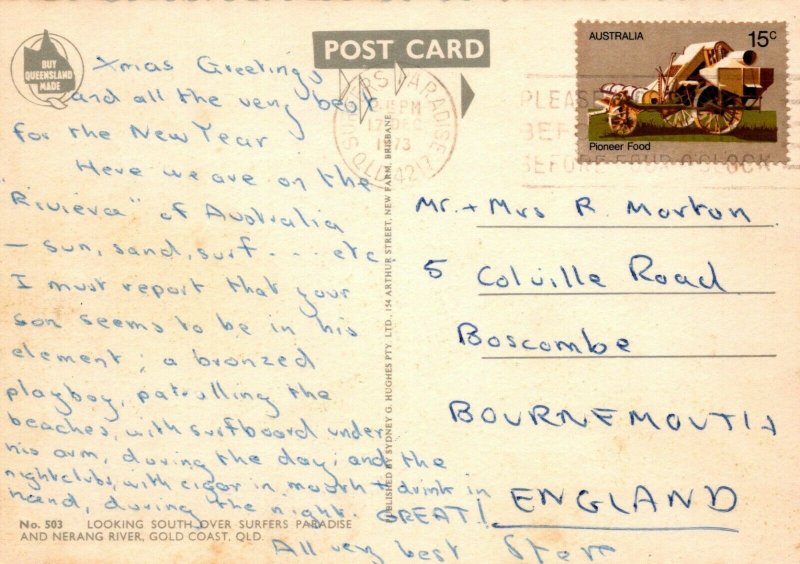 BUY
QUEENSLAND
MADE
POST CARD
AUSTRALIA
15c
Pioneer Food
SURFERS PARADISE
15 PM
17 DEC
1973
QLD 4217
PLEASE
BEFORE FOUR O'CLOCK
Xmas Greetings
and all the very best
for the New Year
Here we are on the
"Riviera" of Australia
— sun, sand, surf - - - etc.
I must report that your
son seems to be in his
element; a bronzed
playboy, patrolling the
beaches, with surfboard under
his arm, during the day; and the
nightclubs, with cigar in mouth + drink in
hand, during the night. GREAT!
All very best
Mr. + Mrs R. Morton
5 Colville Road
Boscombe
BOURNEMOUTH
ENGLAND
PUBLISHED BY SYDNEY G. HUGHES PTY. LTD., 154 ARTHUR STREET, NEW FARM, BRISBANE.
No. 503 LOOKING SOUTH OVER SURFERS PARADISE
AND NERANG RIVER, GOLD COAST, QLD.